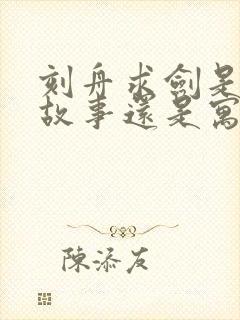 刻舟求劍是
故事還是寓
陳添友